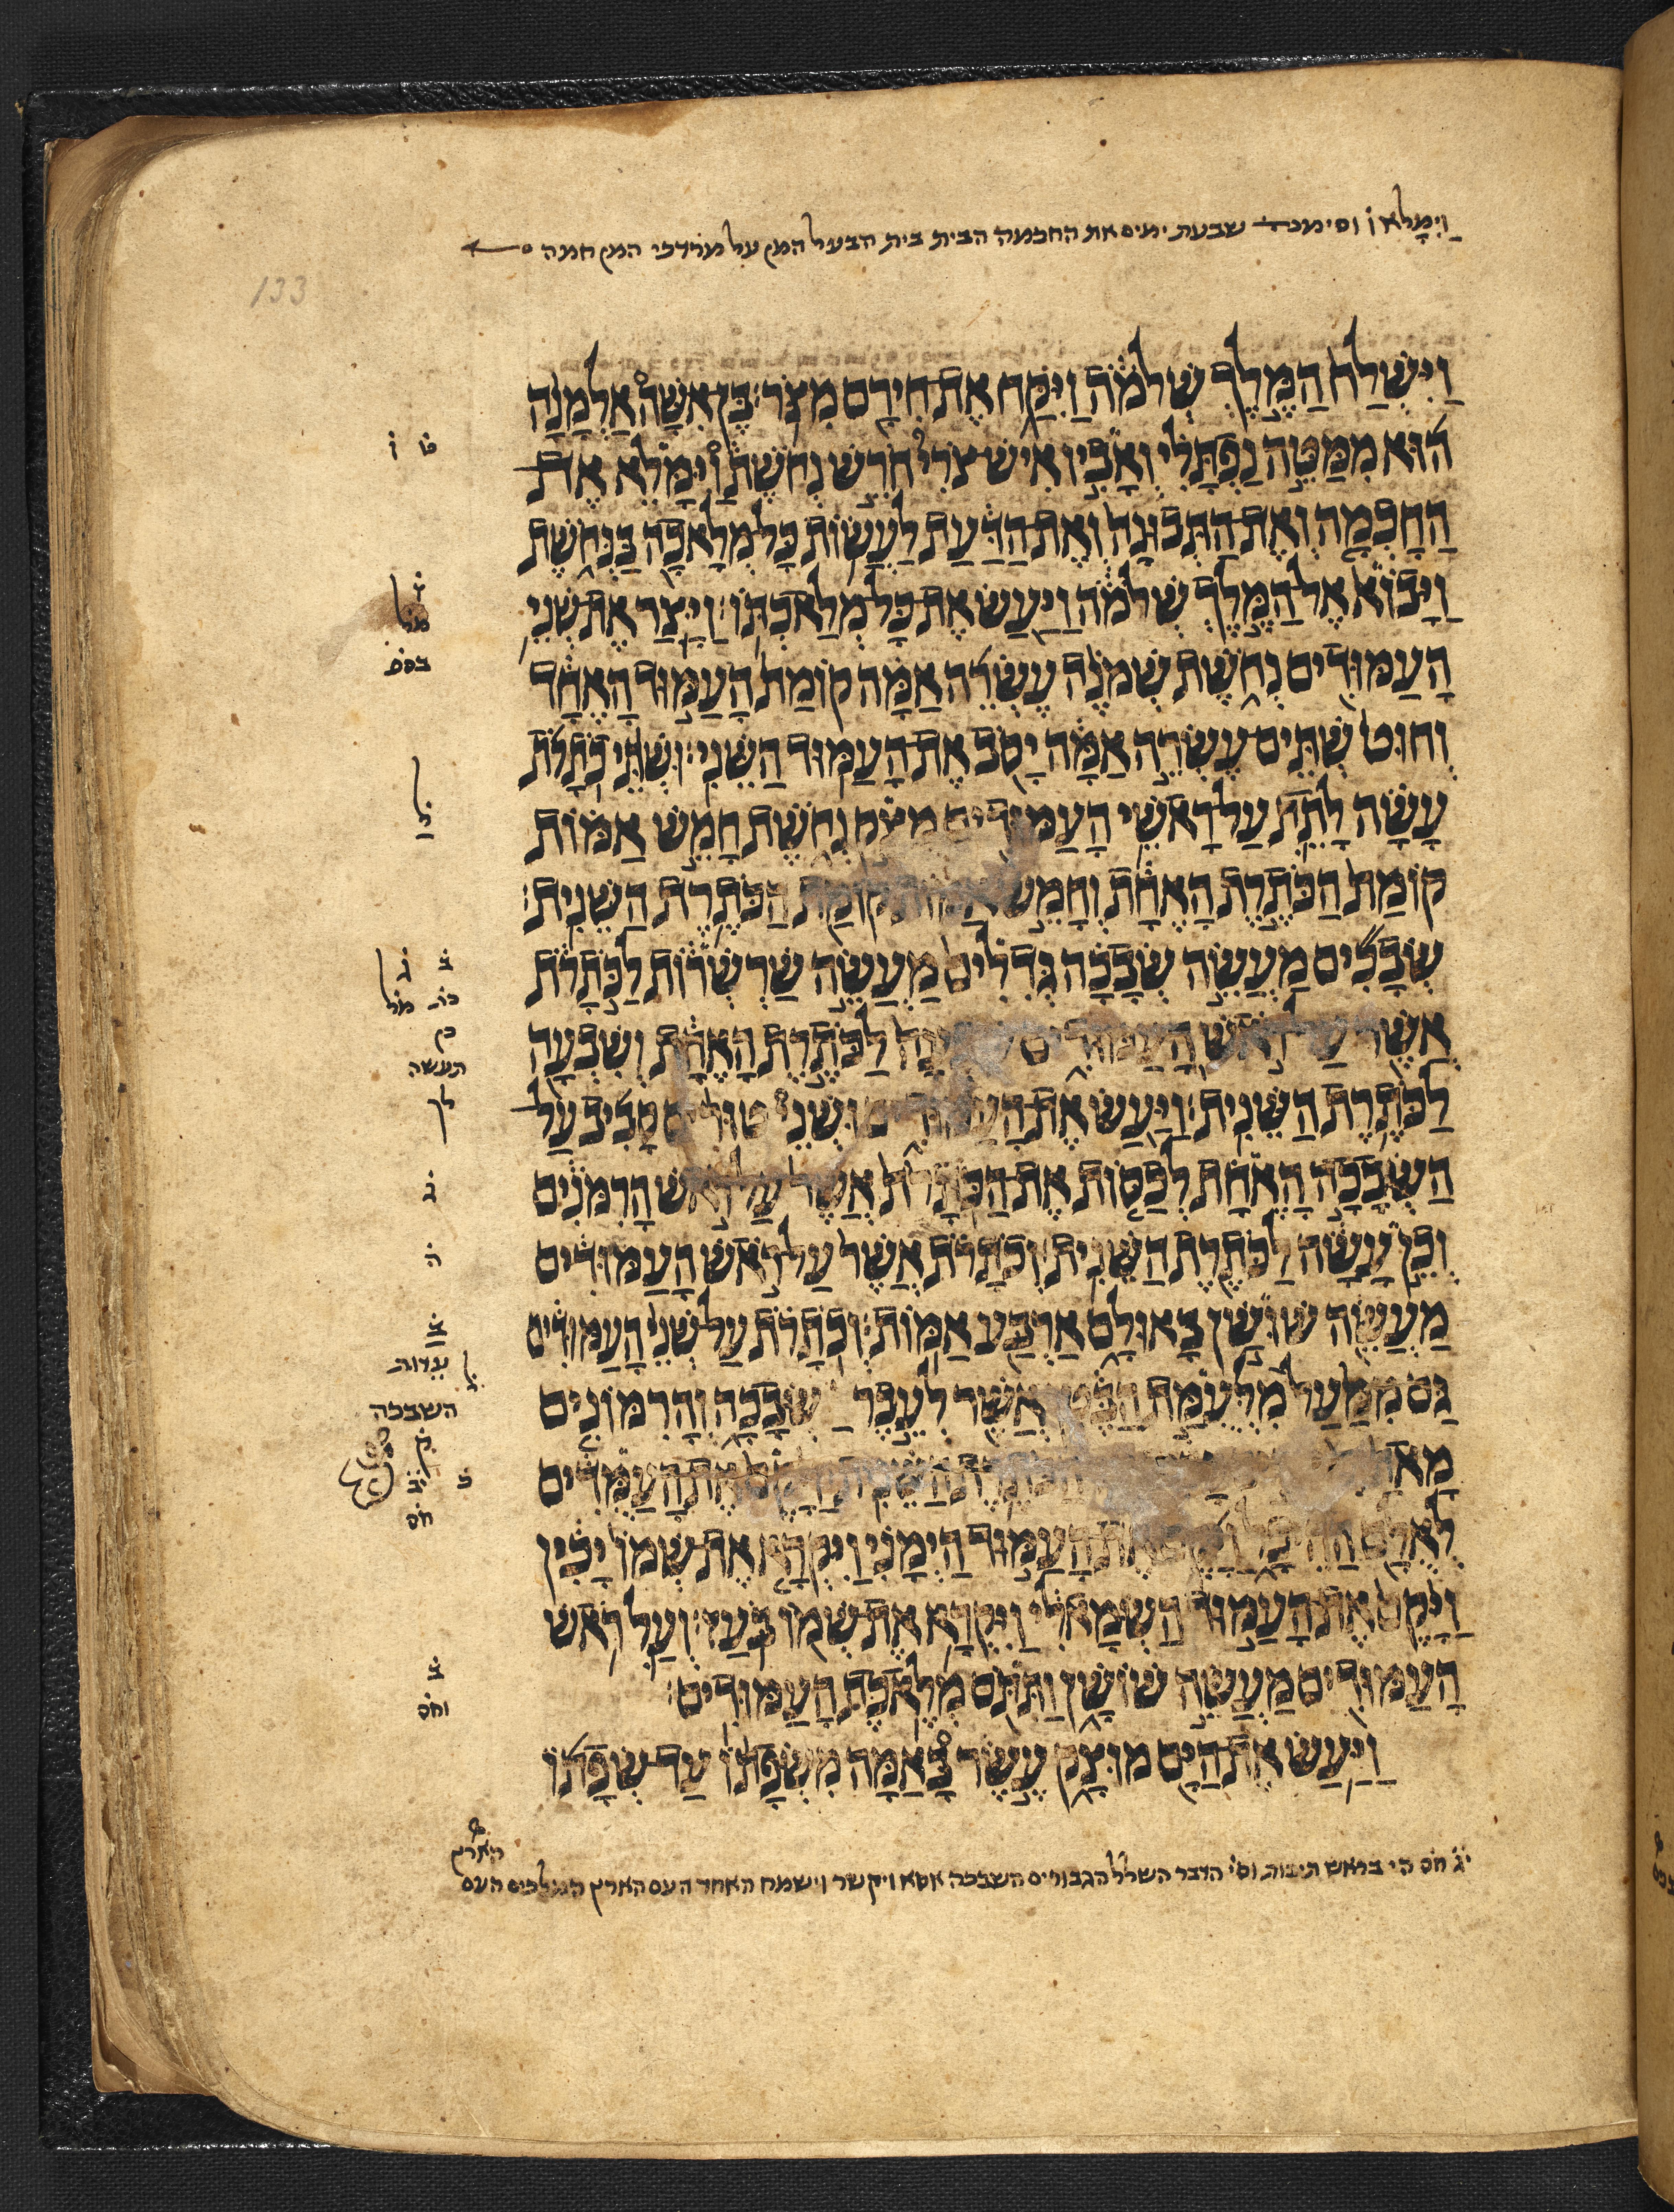 וַיִּמָּלֵא ו̇ וסימנהד שבעת ימים את החכמה הבית בית הבעל המן על מרדכי המן חמה
133
וַיִּשְׁלַח הַמֶּלֶךְ שְׁלֹמֹה וַיִּקַּח אֶת חִירָם מִצֹּר׃ בֶּן אִשָּׁה אַלְמָנָה
הוּא מִמַּטֵּה נַפְתָּלִי וְאָבִיו אִישׁ צֹרִי חֹרֵשׁ נְחֹשֶׁת וַיִּמָּלֵא אֶת
הַחָכְמָה וְאֶת הַתְּבוּנָה וְאֶת הַדַּעַת לַעֲשׂוֹת כָּל מְלָאכָה בַּנְּחֹשֶׁת
וַיָּבוֹא אֶל הַמֶּלֶךְ שְׁלֹמֹה וַיַּעַשׂ אֶת כָּל מְלַאכְתּוֹ׃ וַיָּצַר אֶת שְׁנֵי
הָעַמּוּדִים נְחֹשֶׁת שְׁמֹנֶה עֶשְׂרֵה אַמָּה קוֹמַת הָעַמּוּד הָאֶחָד
וְחוּט שְׁתֵּים עֶשְׂרֵה אַמָּה יָסֹב אֶת הָעַמּוּד הַשֵּׁנִי׃ וּשְׁתֵּי כֹתָרֹת
עָשָׂה לָתֵת עַל רָאשֵׁי הָעַמּוּדִים מֻצַק נְחֹשֶׁת חָמֵשׁ אַמּוֹת
קוֹמַת הַכֹּתֶרֶת הָאֶחָת וְחָמֵשׁ אַמּוֹת קוֹמַת הַכֹּתֶרֶת הַשֵּׁנִית׃
שְׂבָכִים מַעֲשֵׂה שְׂבָכָה גְּדִלִים מַעֲשֵׂה שַׁרְשְׁרוֹת לַכֹּתָרֹת
אֲשֶׁר עַל רֹאשׁ הָעַמּוּדִים שִׁבְעָה לַכֹּתֶרֶת הָאֶחָת וְשִׁבְעָה
לַכֹּתֶרֶת הַשֵּׁנִית׃ וַיַּעַשׂ אֶת הָעַמּוּדִים וּשְׁנֵי טוּרִים סָבִיב עַל
הַשְּׂבָכָה הָאֶחָת לְכַסּוֹת אֶת הַכֹּתָרֹת אֲשֶׁר עַל רֹאשׁ הָרִמֹּנִים
וְכֵן עָשָׂה לַכֹּתֶרֶת הַשֵּׁנִית׃ וְכֹתָרֹת אֲשֶׁר עַל רֹאשׁ הָעַמּוּדִים
מַעֲשֵׂה שׁוּשַׁן בָּאוּלָם אַרְבַּע אַמּוֹת׃ וְכֹתָרֹת עַל שְׁנֵי הָעַמּוּדִים
גַּם מִמַּעַל מִלְּעֻמַּת הַבֶּטֶן אֲשֶׁר לְעֵבֶר שְׂבָכָה וְהָרִמּוֹנִים
הַכֹּתֶרֶת הַשֵּׁנִית׃ וַיָּקֶם אֶת הָעַמֻּדִים
לְאֻלָם הַהֵיכָל וַיָּקֶם אֶת הָעַמּוּד הַיְמָנִי וַיִּקְרָא אֶת שְׁמוֹ יָכִין
וַיָּקֶם אֶת הָעַמּוּד הַשְּׂמָאלִי וַיִּקְרָא אֶת שְׁמוֹ בֹּעַז׃ וְעַל רֹאשׁ
הָעַמּוּדִים מַעֲשֵׂה שׁוֹשָׁן וַתִּתֹּם מְלֶאכֶת הָעַמּוּדִים׃
וַיַּעַשׂ אֶת הַיָּם מוּצָק עֶשֶׂר בָּאַמָּה מִשְּׂפָתוֹ עַד שְׂפָתוֹ
ט̇ ו̇
ל̇
ב̇ ג̇
תעשה
לך
ג̇
ה̇
ב̇
השבכה
חס
ב̇
וחס
הארץ
י̇ג̇ חס הי בראש תיבות וס̇י̇ הדבר השרלל הגבורים השבכה אסא ויקשר וישמח האחד העם הארץ המלכים העם